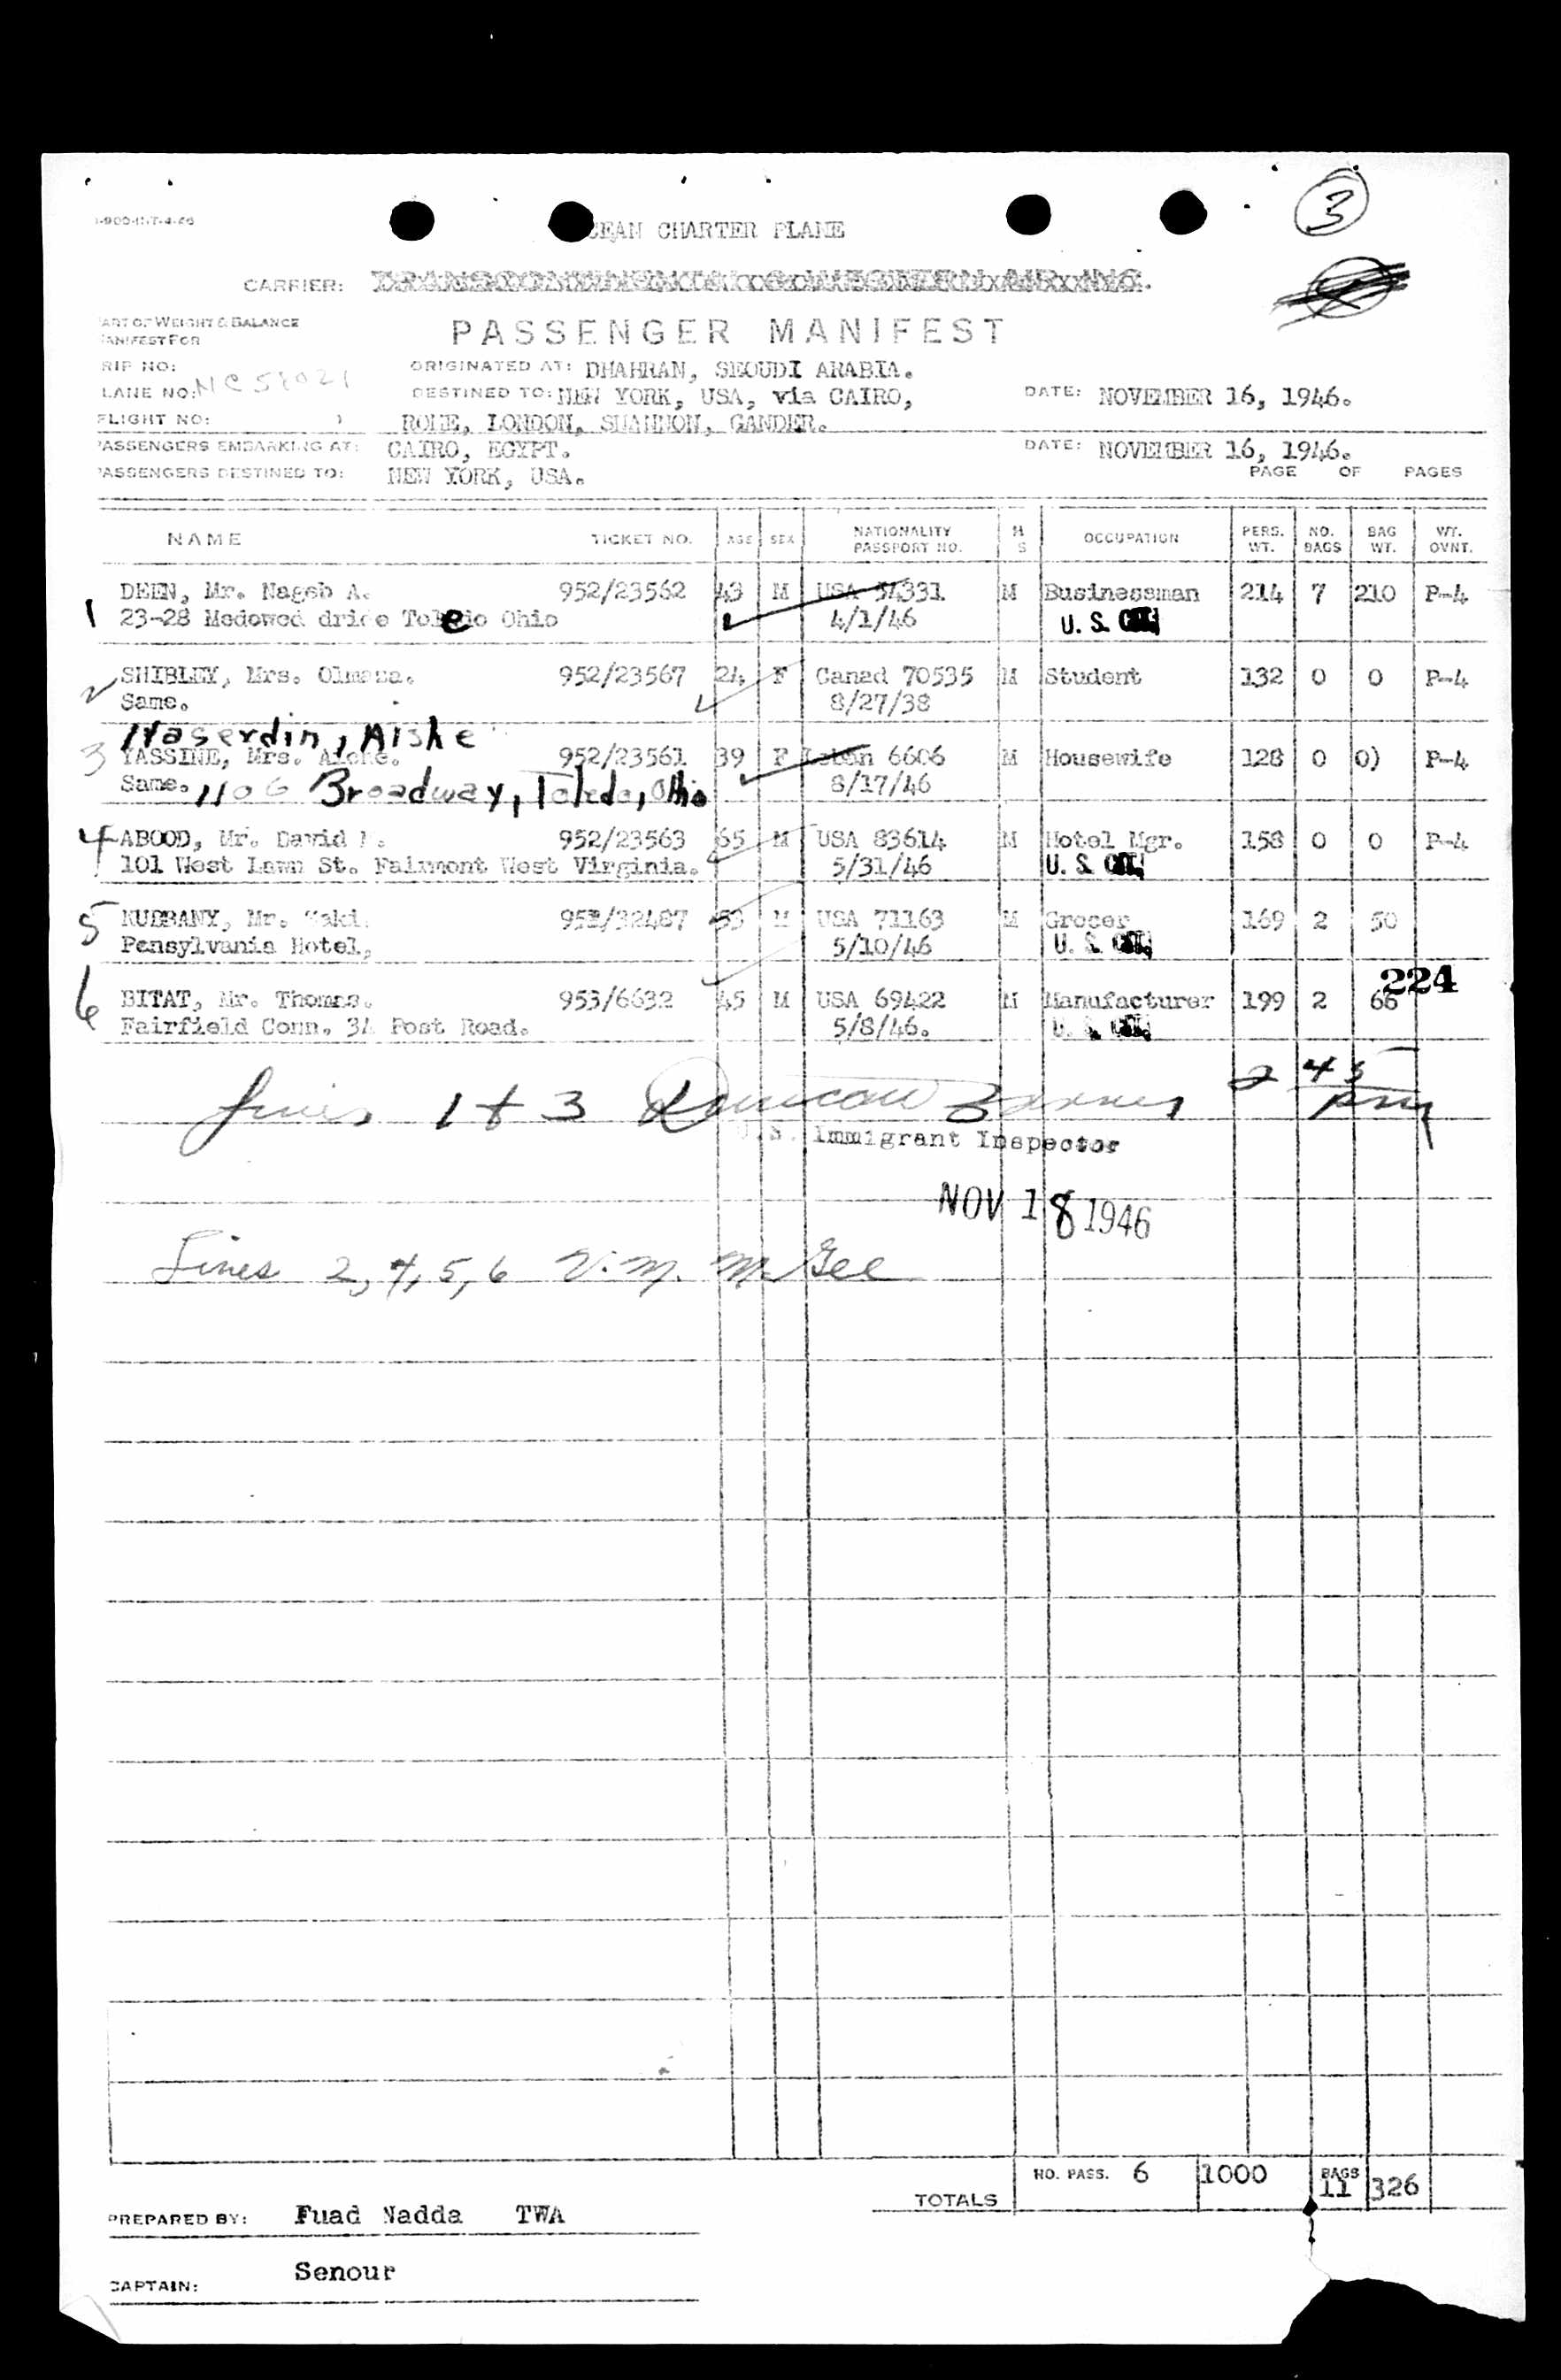 CHARTER PLANE
3
CARRIER:
WEIGHT & BALANCE
PASSENGER MANIFEST
MANIFEST FOR
ORIGINATED AT: DHAHRAN, SEOUDI ARABIA.
DESTINED TO: NEW YORK, USA, via CAIRO, DATE: NOVEMBER 16, 1946.
FLIGHT NO: ROME, LONDON, SHANNON, GANDER.
PASSENGERS EMBARKING AT: CAIRO, EGYPT. DATE: NOVEMBER 16, 1946.
PASSENGERS DESTINED TO: NEW YORK, USA. PAGE OF PAGES
NAME TICKET NO. AGE SEX NATIONALITY PASSPORT NO. M S OCCUPATION PERS. WT. NO. BAGS BAG WT. WT. OVNT.
1 DEEN, Mr. Nageb A. 952/23562 43 M USA M Businessman 214 7 210 P-4
23-28 Toledo Ohio 4/1/46 U. S.
2 SHIBLEY, Mrs. 952/23567 24 F Canad 70535 M Student 132 0 0 P-4
Same. 8/27/38
Naserdin, Aishe
3 YASSINE, Mrs. 952/23561 39 F 6606 M Housewife 128 0 0) P-4
Same. 1106 Broadway, Toledo, Ohio 8/17/46
4 ABOOD, Mr. David 952/23563 65 M USA 83614 M Hotel Mgr. 158 0 0 P-4
101 West Lawn St. Fairmont West Virginia. 5/31/46 U. S.
5 Mr. M USA 71163 M Grocer 169 2 50
Pensylvania Hotel, 5/10/46 U. S.
224
6 BITAT, Mr. Thomas. 953/6632 45 M USA 69422 M Manufacturer 199 2 66
Fairfield Conn. Post Road. 5/8/46. U. S.
Lines 1 + 3 Duncan 2 45 pm
U.S. Immigrant Inspector
NOV 18 1946
Lines 2, 4, 5, 6 V. M. McGee
NO. PASS. 6 1000 BAGS 11 326
TOTALS
PREPARED BY: Fuad Nadda TWA
CAPTAIN: Senour